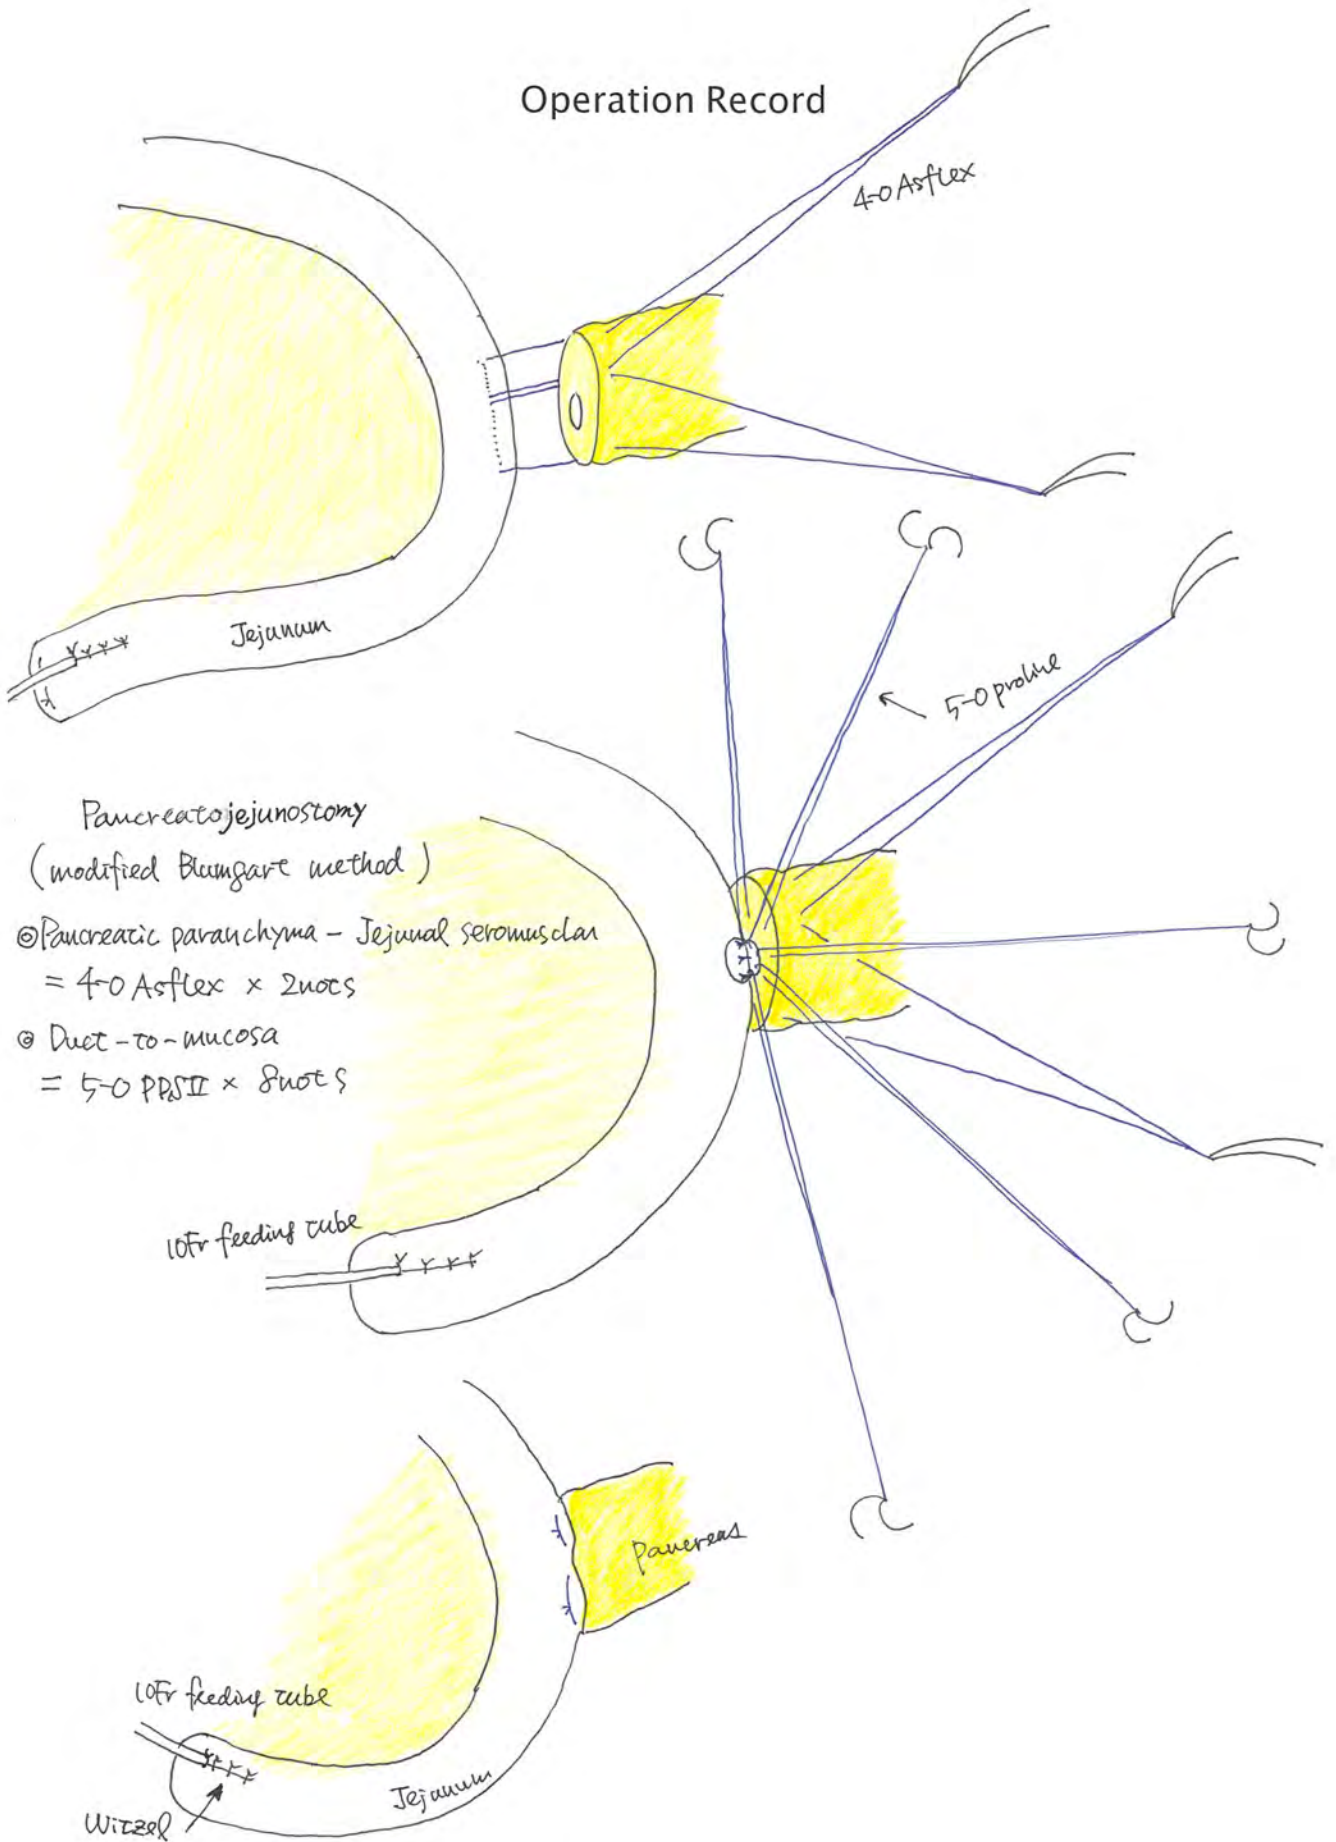 Operation Record
4-0 Asflex
Jejunum
5-0 proline
Pancreatojejunostomy
(modified Blumgart method)
◎Pancreatic paranchyma - Jejunal seromusclar
= 4-0 Asflex × 2nots
◎ Duct-to-mucosa
= 5-0 PDSII × 8nots
10Fr feeding tube
Pancreas
10Fr feeding tube
Jejunum
Witzel